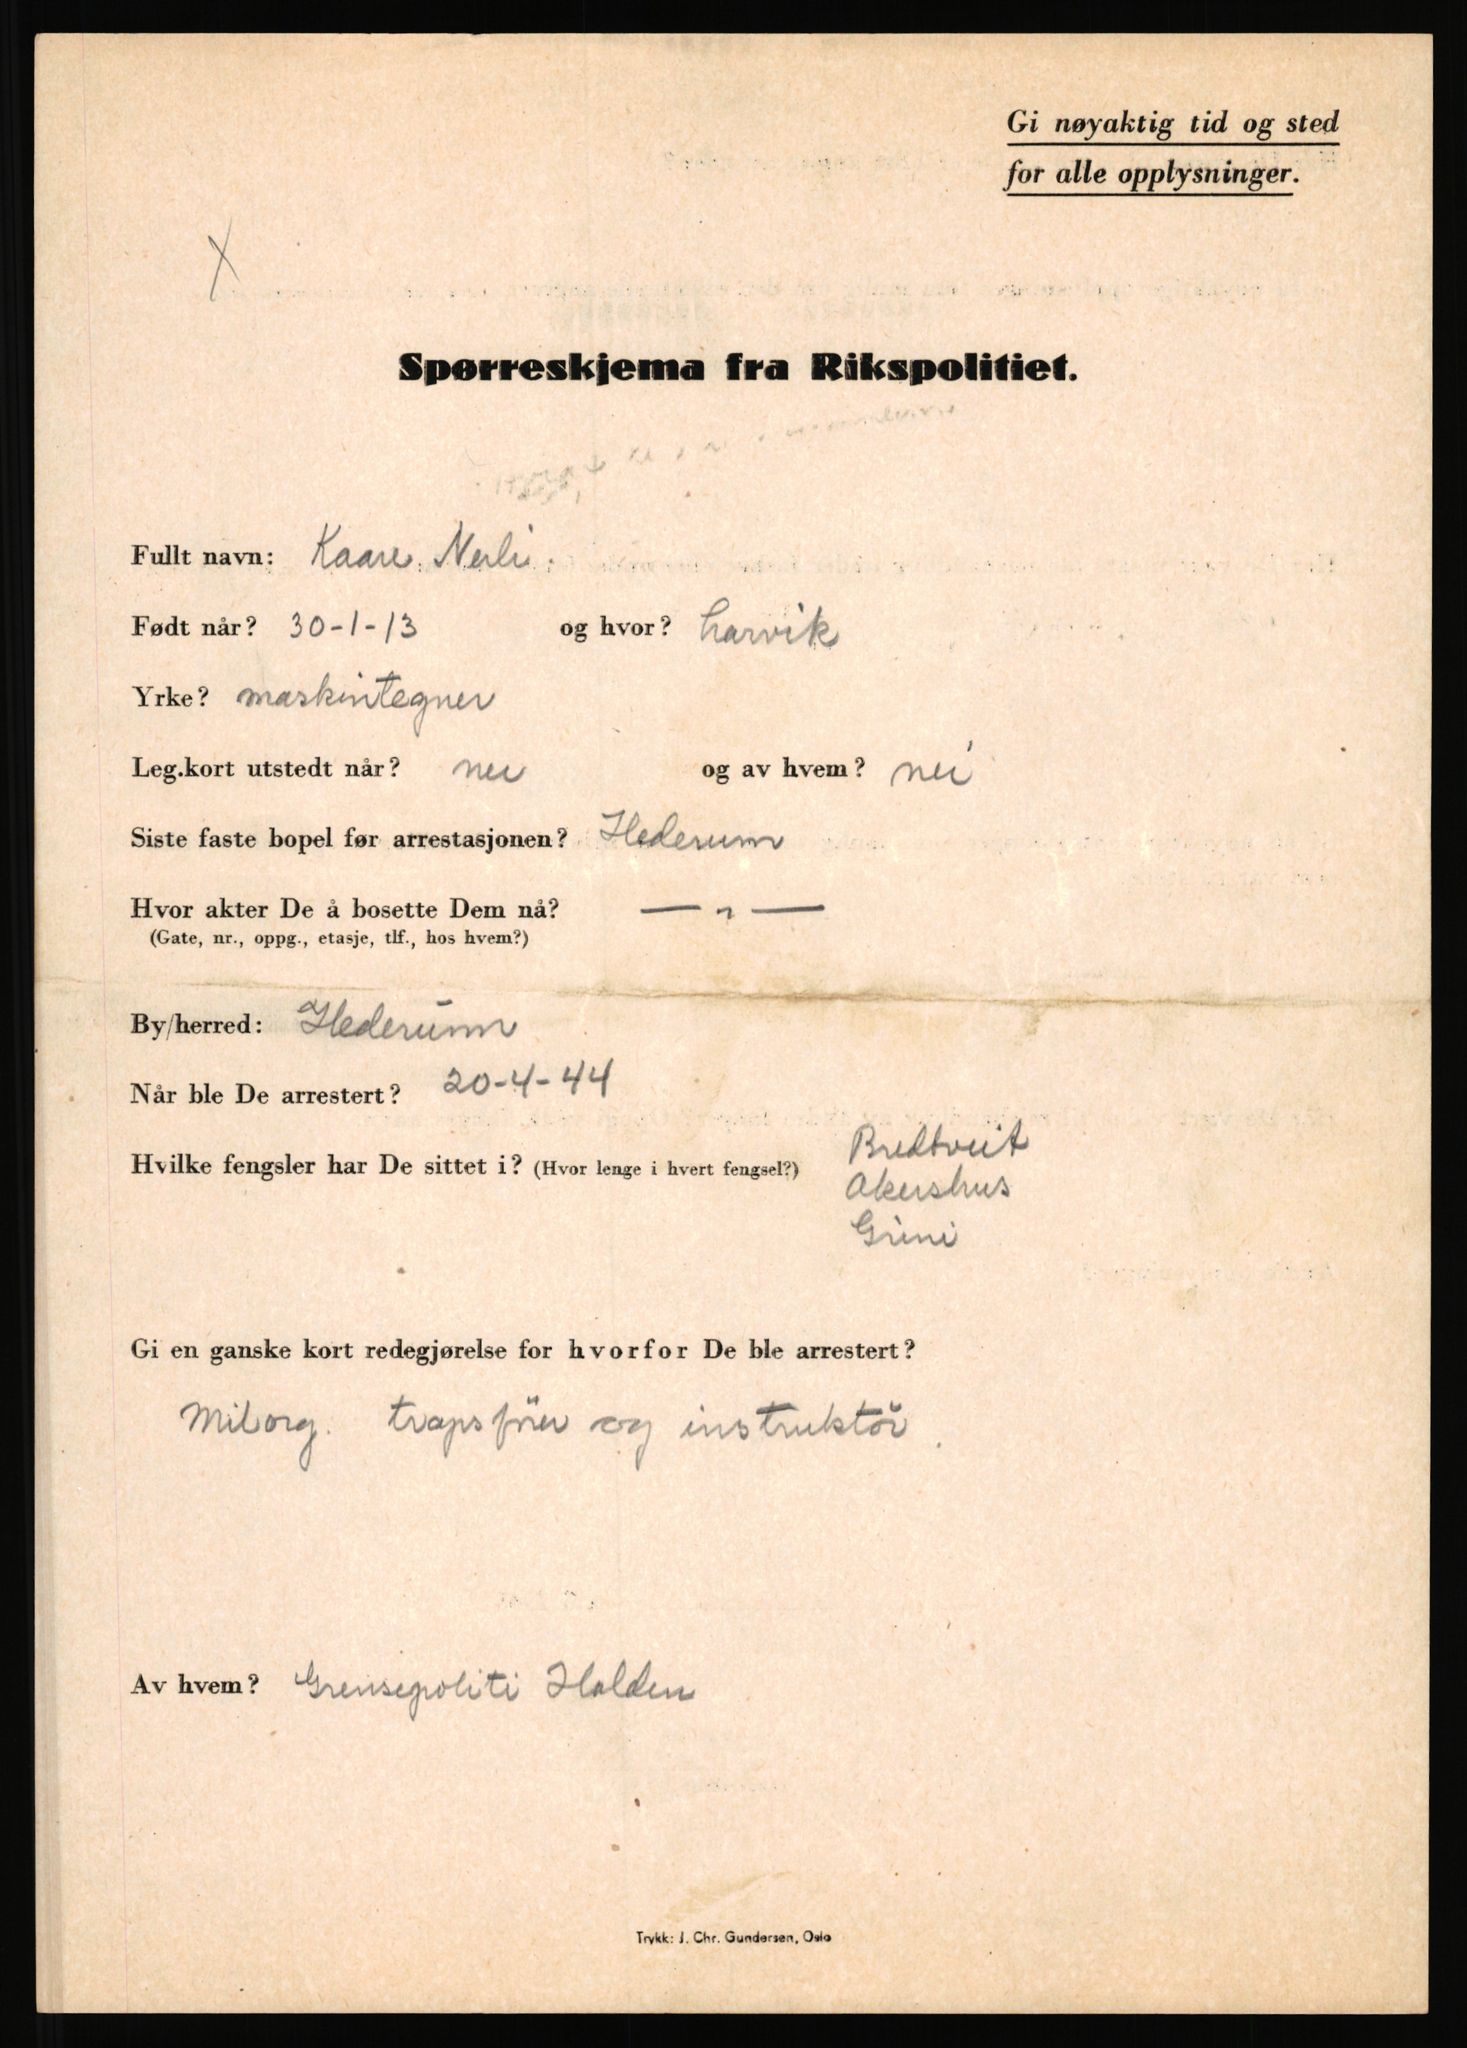 Gi nøyaktig tid og sted
for alle opplysninger.
X
Spørreskjema fra Rikspolitiet.
Fullt navn: Kaare Nerli.
Født når? 30-1-13 og hvor? Larvik
Yrke? maskintegner
Leg.kort utstedt når? nei og av hvem? nei
Siste faste bopel før arrestasjonen? Hederum
Hvor akter De å bosette Dem nå? — „ —
(Gate, nr., oppg., etasje, tlf., hos hvem?)
By/herred: Hederum
Når ble De arrestert? 20-4-44
Hvilke fengsler har De sittet i? (Hvor lenge i hvert fengsel?) Bredtveit
Akershus
Grini
Gi en ganske kort redegjørelse for hvorfor De ble arrestert?
Milorg. tropsförer og instruktör.
Av hvem? Grensepoliti Halden
Trykk: J. Chr. Gundersen, Oslo